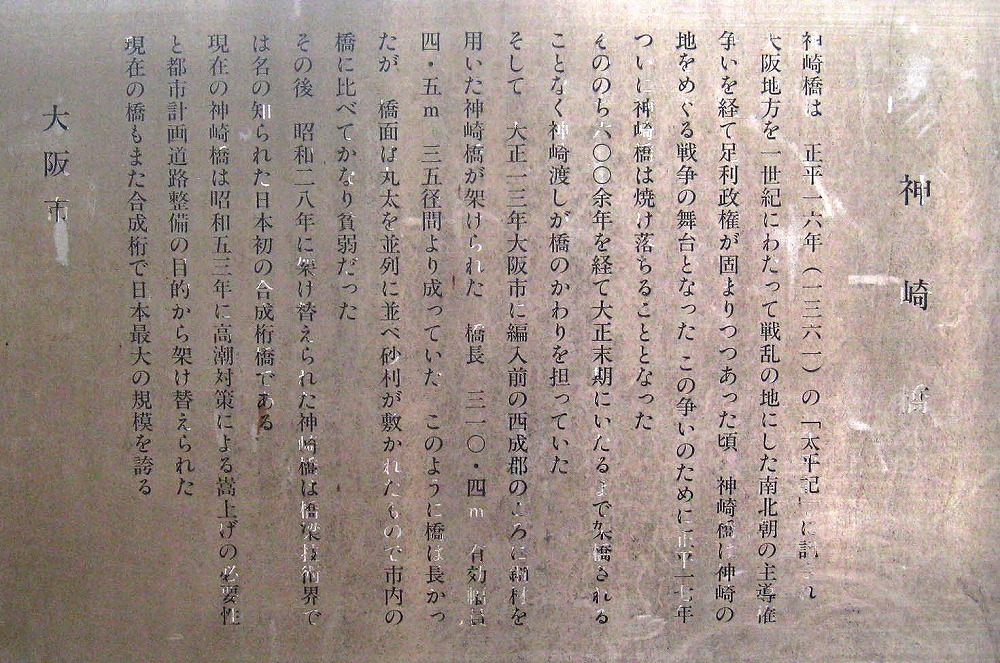 神崎橋
神崎橋は 正平一六年(一三六一)の「太平記」に記され
大阪地方を一世紀にわたって戦乱の地にした南北朝の主導権
争いを経て足利政権が固まりつつあった頃 神崎橋は神崎の
地をめぐる戦争の舞台となった この争いのために正平一七年
ついに神崎橋は焼け落ちることとなった
そののち六〇〇余年を経て大正末期にいたるまで架橋される
ことなく神崎渡しが橋のかわりを担っていた
そして 大正一三年大阪市に編入前の西成郡のころに鋼材を
用いた神崎橋が架けられた 橋長 三一〇・四m 有効幅員
四・五m 三五径間より成っていた このように橋は長かっ
たが 橋面は丸太を並列に並べ砂利が敷かれたもので市内の
橋に比べてかなり貧弱だった
その後 昭和二八年に架け替えられた神崎橋は橋梁技術界で
は名の知られた日本初の合成桁橋である
現在の神崎橋は昭和五三年に高潮対策による嵩上げの必要性
と都市計画道路整備の目的から架け替えられた
現在の橋もまた合成桁で日本最大の規模を誇る
大阪市